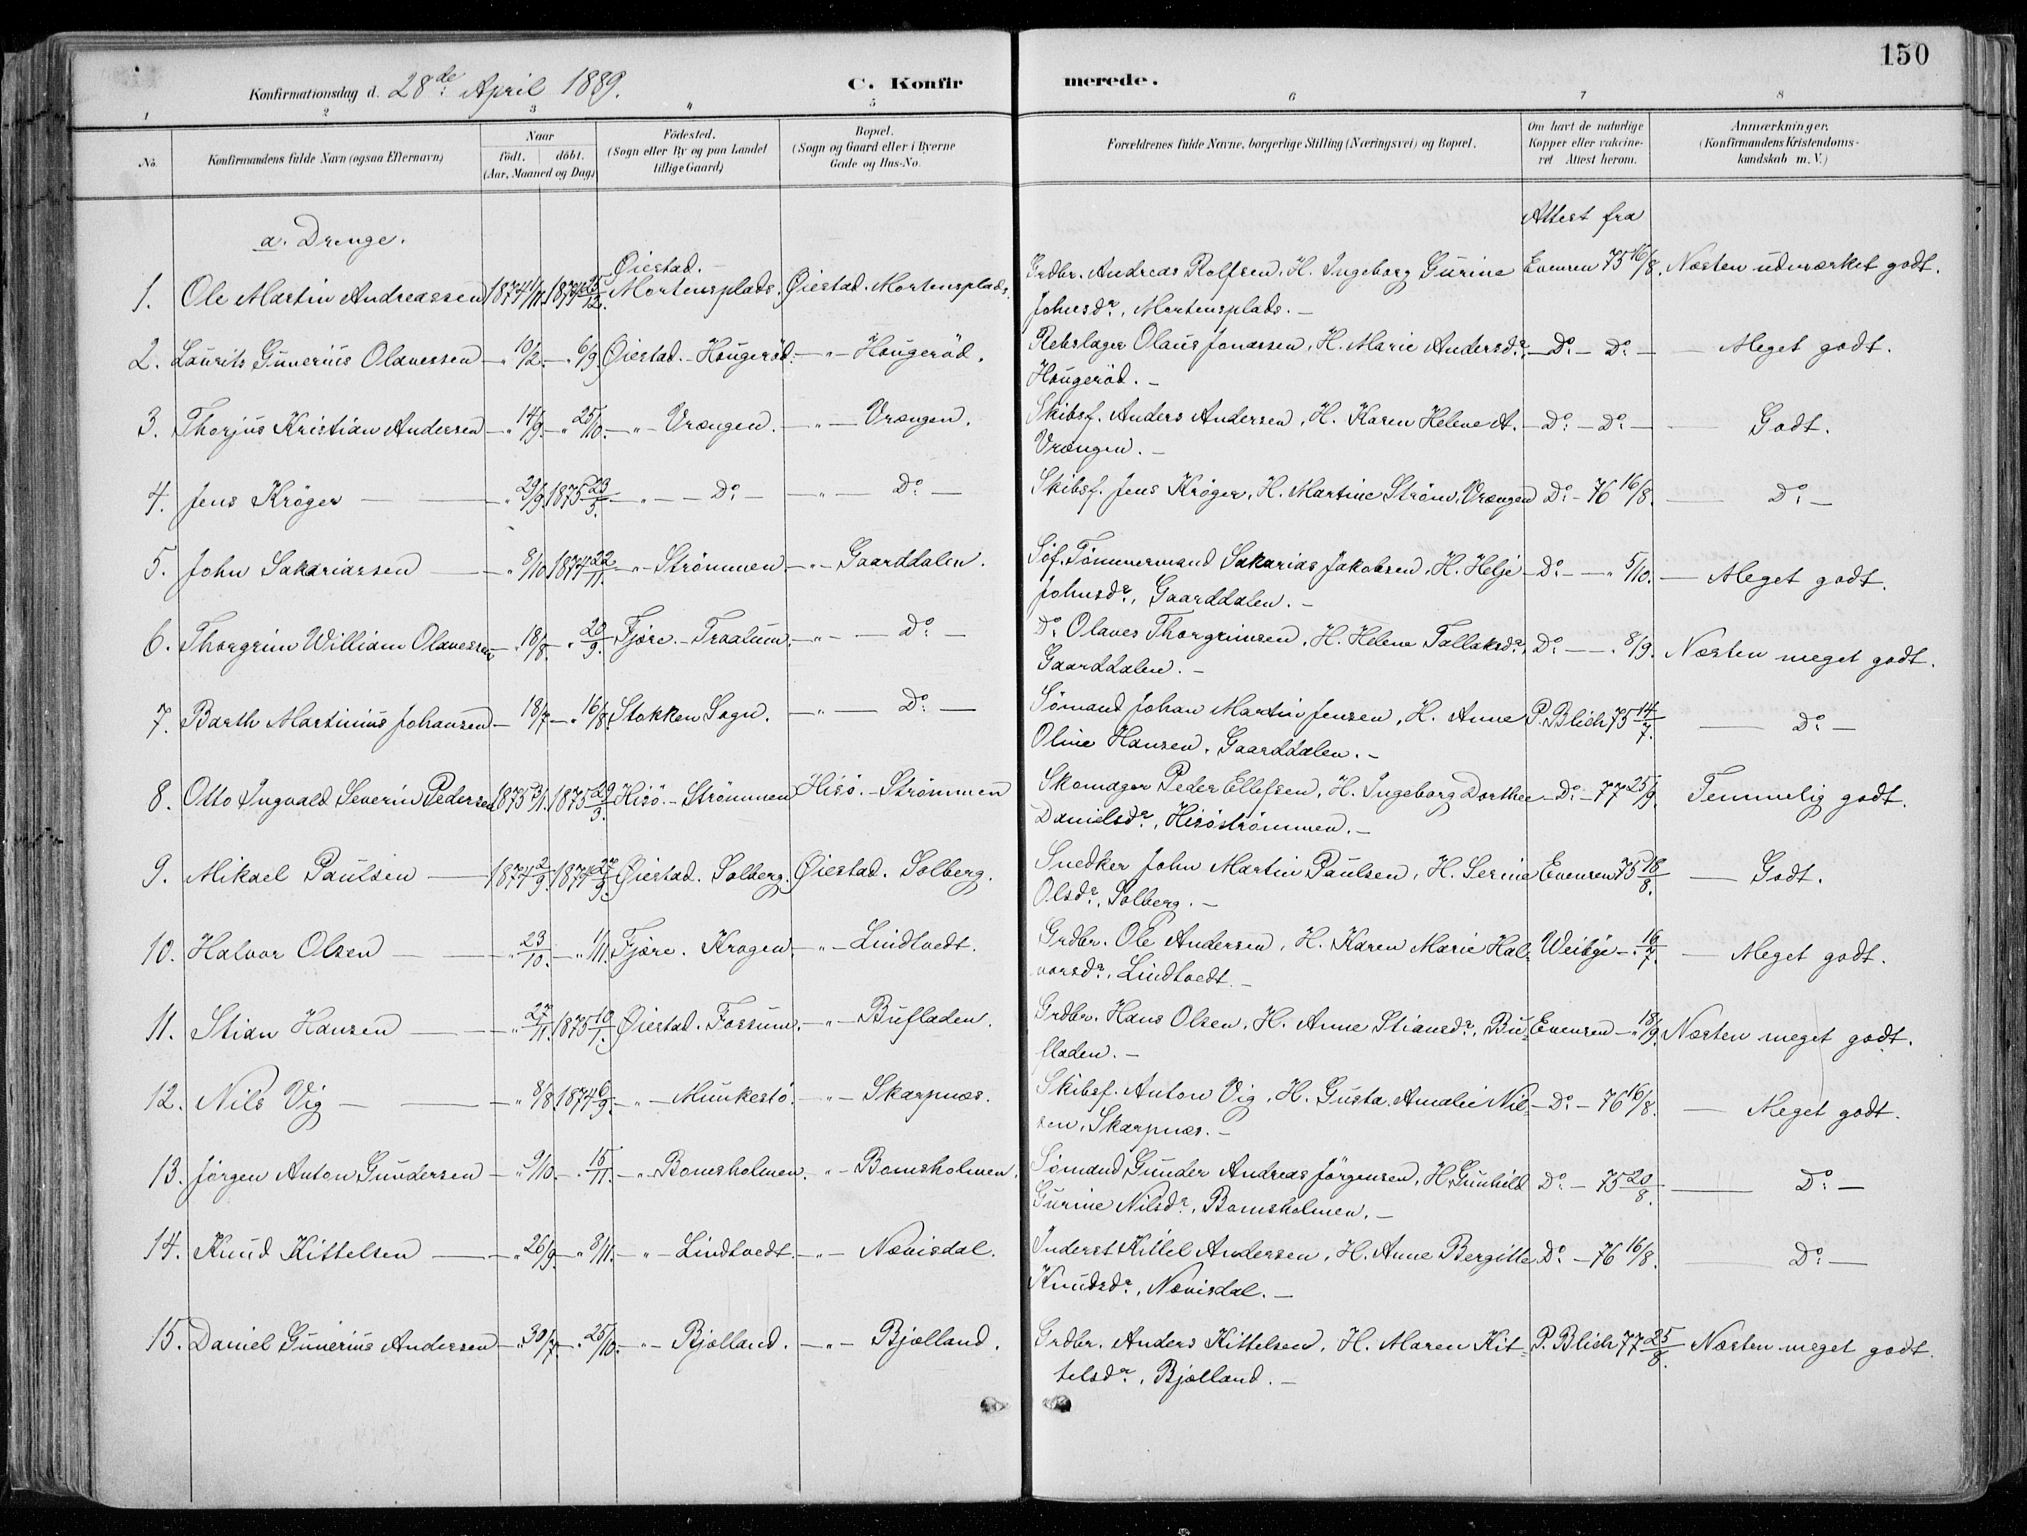 150
Konfirmationsdag d. 28de April 1889.
C. Konfirmerede.
1 2 3 " 5 6 7 8
No.
Konfirmandens fulde Navn (ogsaa Efternavn)
Naar
født. døbt.
(Aar, Maaned og Dag)
Fødested.
(Sogn eller By og paa Landet
tillige Gaard)
Bopæl.
(Sogn og Gaard eller i Byerne
Gade og Hus-No.
Forældrenes fulde Navne, borgerlige Stilling (Næringsvei) og Bopæl.
Om havt de naturlige
Kopper eller vakcine-
ret Attest herom.
Anmærkninger.
(Konfirmandens Kristendoms-
kundskab m. V.)
a. Drenge.
Attest fra
1. Ole Martin Andreassen 1874 1/11. 1874 25/12. Øiestad. - Mortensplads. Øiestad. Mortensplads. Grdbr. Andreas Rolfsen, H. Ingeborg Gurine Evensen 75 16/8. Næsten udmærket godt.
Johnsdr., Mortensplads. -
2. Laurits Gunerius Olavessen - " 10/2. - " 6/9. Øiestad. - Hougerød. - " - Hougerød. Rebslager Olaus Jonassen, H. Marie Andersdr. - Do. - Do. - Meget godt.
Hougerød. -
3. Thorjus Kristian Andersen - " 14/9. - " 25/10. - " - Vrængen. - " - Vrængen. Skibsf. Anders Andersen, H. Karen Helene A. - Do. - Do. - Godt.
Vrængen. -
4. Jens Krøger - " 29/9. 1875 23/5. - " - Do. - " - Do. - Skibsf. Jens Krøger, H. Martine Strøm, Vrængen Do. - 76 16/8. - Do. -
5. John Sakariassen - " 8/10. 1874 22/11. - " - Strømmen. - " - Gaarddalen. Søf. Tømmermand Sakarias Jakobsen, H. Helje - Do. - " 5/10. - Meget godt.
Johnsdr., Gaarddalen. -
6. Thorgrim William Olavessen - " 18/8. - " 20/9. Fjære. - Traatum. - " - Do. - Do. Olaves Thorgrimsen, H. Helene Tallaksdr., Do. - " 8/9. Næsten meget godt.
Gaarddalen. -
7. Barth Martinius Johansen - 18/7. - " 16/8. Stokken Sogn. - " - Do. - Sømand Johan Martin Jensen, H. Anne P. Blich 75 14/7. - Do. -
Oline Hansen, Gaarddalen. -
8. Otto Ingvald Severin Pedersen 1875 3/1. 1875 29/3. Hisø. - Strømmen Hisø. - Strømmen Skomager Peder Ellefsen, H. Ingeborg Dorthee - Do. - 77 25/9. Temmelig godt.
Danielsdr., Hisøstrømmen. -
9. Mikael Paulsen - 1874 2/9. 1874 27/9. Øiestad. Solberg. Øiestad. Solberg. Snedker John Martin Paulsen, H. Serine Evensen 75 18/8. - Godt.
Olsdr., Solberg. -
10. Halvor Olsen - " 23/10. - " 1/11. Fjære. Krogen. - " - Lindtvedt. Grdbr. Ole Andersen, H. Karen Marie Hal- Weibye - " 16/7. - Meget godt.
vorsdr., Lindtvedt. -
11. Stian Hansen - " 27/11. 1875 10/1. Øiestad. Fossum. - " - Bufladen. Grdbr. Hans Olsen, H. Anne Stiansdr., Bu- Evensen - " 18/9. Næsten meget godt.
fladen. -
12. Nils Vig - " 8/8. 1874 6/9. - " - Munkestø. - " - Skarpnæs. Skibsf. Anton Vig, H. Gusta Amalie Nil- - Do. - 76 16/8. - Meget godt.
sen, Skarpnæs. -
13. Jørgen Anton Gundersen - " 9/10. - " 15/11. - " - Bomsholmen. - " - Bomsholmen. Sømand Gunder Andreas Jørgensen, H. Gunhild Do. - 75 20/8. - Do. -
Gurine Nilsdr., Bomsholmen. -
14. Knud Kittelsen - " 26/9. - " 8/11. - " - Lindtvedt. - " - Nævisdal. Inderst Kittel Andersen, H. Anne Bergitte Do. - 76 16/8. - Do. -
Knudsdr., Nævisdal. -
15. Daniel Gunerius Andersen - " 30/7. - " 25/10. - " - Bjølland. - " - Bjølland. Grdbr. Anders Kittelsen, H. Maren Kit- P. Blich 77 25/8. Næsten meget godt.
telsdr., Bjølland. -